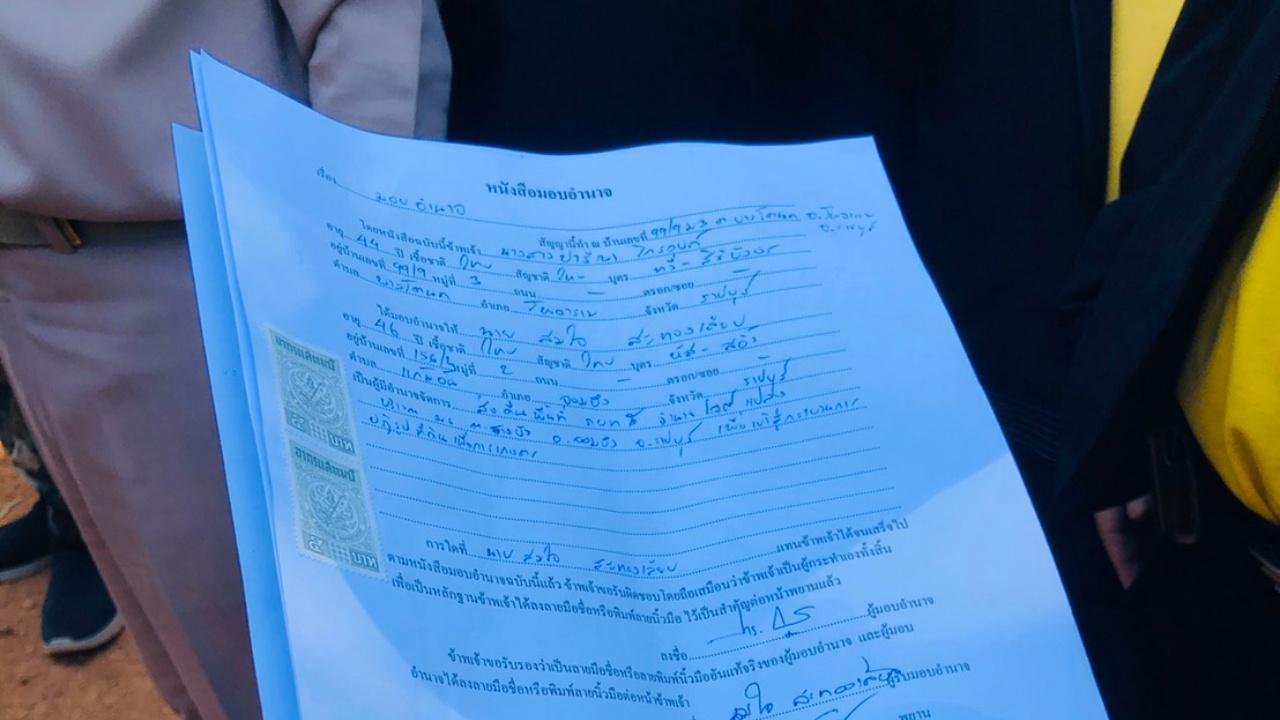 หนังสือมอบอำนาจ
เรื่อง มอบอำนาจ
สัญญานี้ทำ ณ บ้านเลขที่ 99/9 ม.3
โดยหนังสือฉบับนี้ข้าพเจ้า นางสาวปารีณา ไกรคุปต์
อายุ 44 ปี เชื้อชาติ ไทย สัญชาติ ไทย บุตร
อยู่บ้านเลขที่ 99/9 หมู่ที่ 3 ถนน - ตรอก/ซอย -
ตำบล อำเภอ โพธาราม จังหวัด ราชบุรี
ได้มอบอำนาจให้ นาย สมใจ
อายุ 46 ปี เชื้อชาติ ไทย สัญชาติ ไทย บุตร
อยู่บ้านเลขที่ หมู่ที่ 2 ถนน - ตรอก/ซอย -
ตำบล อำเภอ จอมบึง จังหวัด ราชบุรี
เป็นผู้มีอำนาจจัดการ ส่งคืนพื้นที่
อ.จอมบึง จ.ราชบุรี เพื่อเข้าสู่กระบวนการ
ปฏิรูปที่ดินเพื่อการเกษตร
อากรแสตมป์
๕ บาท
อากรแสตมป์
๕ บาท
การใดที่ นาย สมใจ แทนข้าพเจ้าได้จนเสร็จไป
ตามหนังสือมอบอำนาจฉบับนี้แล้ว ข้าพเจ้าขอรับผิดชอบโดยถือเสมือนว่าข้าพเจ้าเป็นผู้กระทำเองทั้งสิ้น
เพื่อเป็นหลักฐานข้าพเจ้าได้ลงลายมือชื่อหรือพิมพ์ลายนิ้วมือ ไว้เป็นสำคัญต่อหน้าพยานแล้ว
ลงชื่อ ผู้มอบอำนาจ
ข้าพเจ้าขอรับรองว่าเป็นลายมือชื่อหรือลายพิมพ์นิ้วมืออันแท้จริงของผู้มอบอำนาจ และผู้มอบ
อำนาจได้ลงลายมือชื่อหรือพิมพ์ลายนิ้วมือต่อหน้าข้าพเจ้า
สมใจ ผู้รับมอบอำนาจ
พยาน